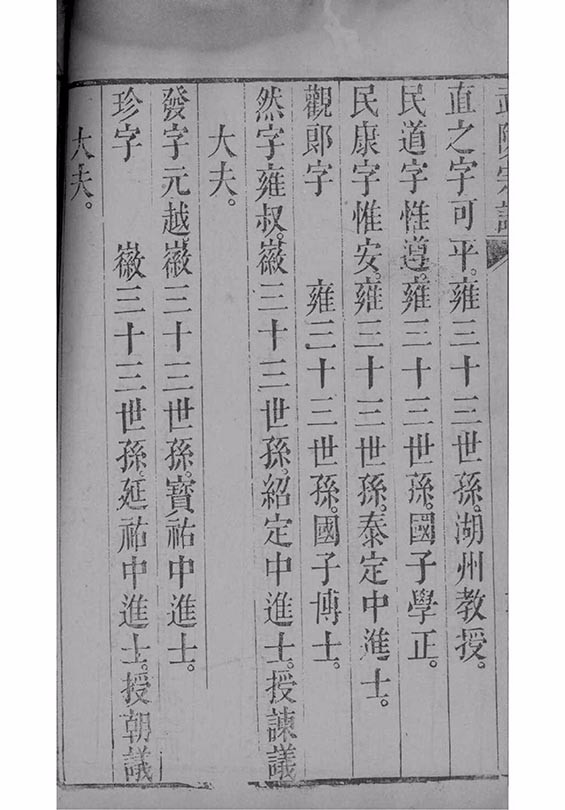 直之字可平。雍三十三世孫。湖州教授。
民道字惟遵。雍三十三世孫。國子學正。
民康字惟安。雍三十三世孫。泰定中進士。
觀郎字　雍三十三世孫。國子博士。
然字雍叔。徽三十三世孫。紹定中進士。授諫議
大夫。
發字元越。徽三十三世孫。寶祐中進士。
珍字　徽三十三世孫。延祐中進士。授朝議
大夫。